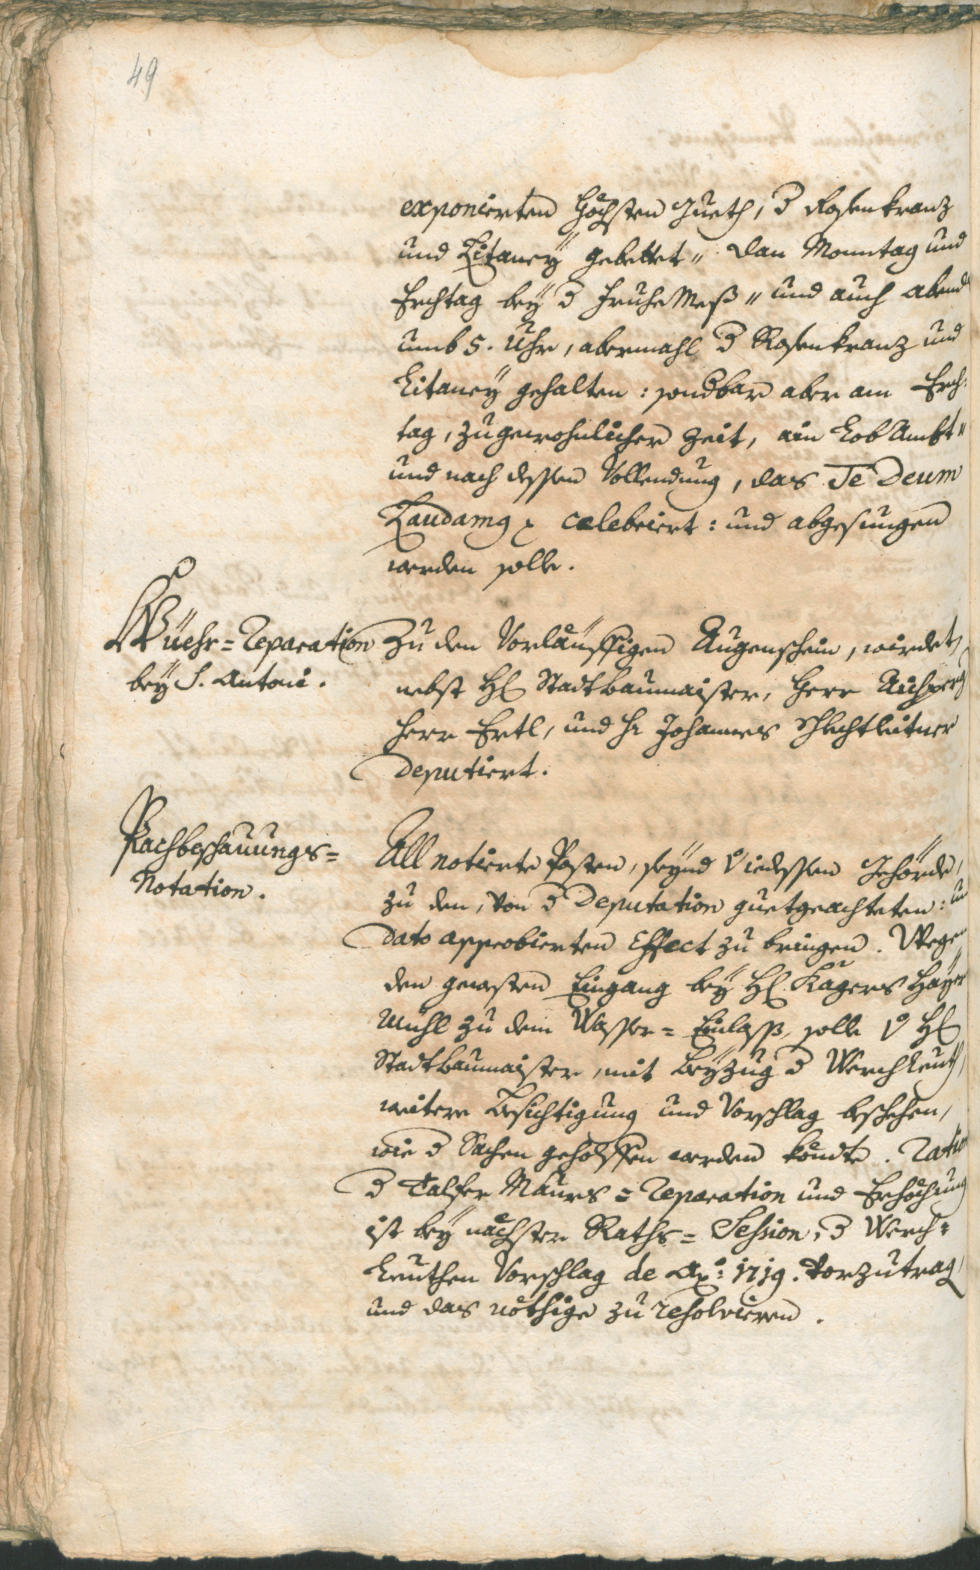 49
exponierten Höchsten Gueth, d Rosenkranz
und Litaney gebettet" dan Monntag und
Erchtag bey d Fruhe Mess" und auch abend
umb 5. Uhr, abermahl d Rosenkranz und
Litaney gehalten: sondbar aber am Erch:
tag, zu gewohnlicher Zeit, ain Lob Ambt"
und nach dessen Vollendung, das Te Deum
Laudamq celebriert: und abgesungen
werden solle.
Wüehr=Reparation
bey S. Antoni.
Zu den Vorläuffigen Augenschein, wirdet
nebst H Stadtbaumaister, Herr
Herr Ertl, und H Johannes Schlechtleitner
deputiert.
Pachbeschauungs=
Notation.
All notierte Posten, seynd iedessen Gehörde,
zu den, von d Deputation guetgeachteten: u
dato approbierten Effect zu bringen. Wegen
den Eingang bey H Kagers
Mühl zu dem Wasser=Einlass solle H
Stadtbaumaister, mit Beyzug d Werchleuth,
weitere Besichtigung und Vorschlag beschehen,
wie d Sachen geholffen werden köndte. Ratio
d Talfer Maurs=Reparation und Erhöchung
ist bey nächster Raths=Session, d Werch=
Leuthen Vorschlag de Ao: 1719. vorzutrag
und das nöthige zu resolvieren.